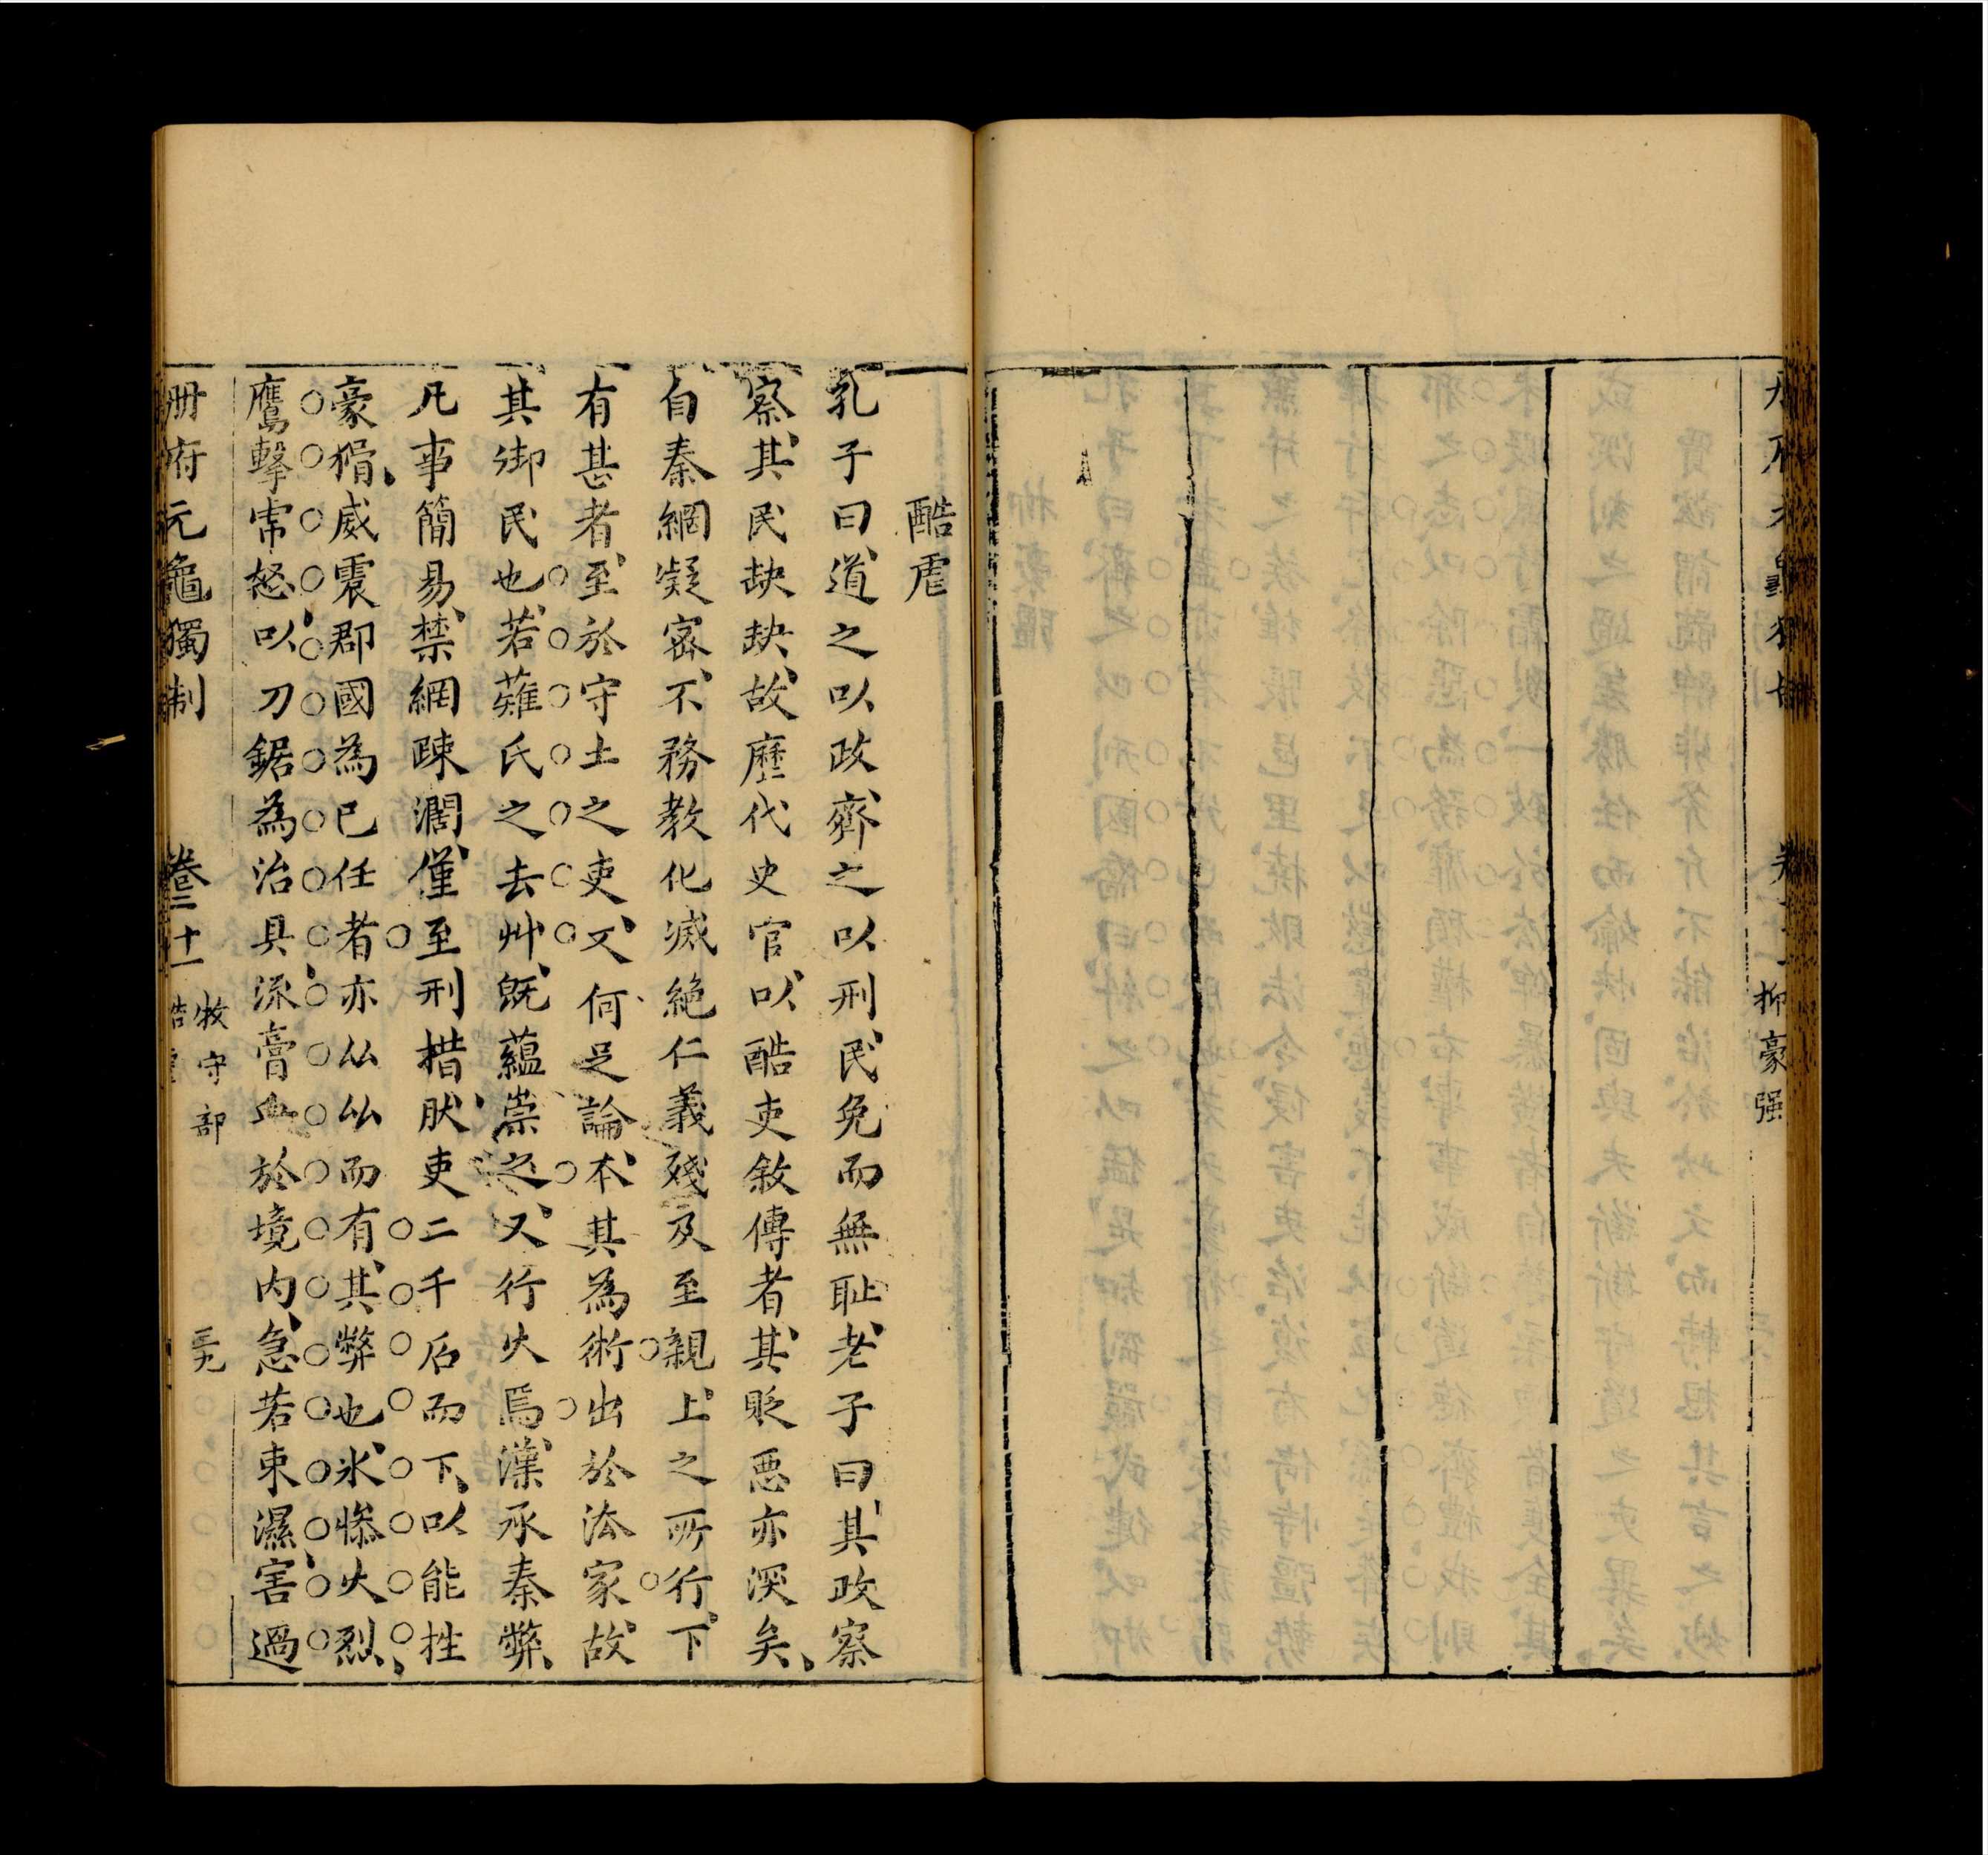 抑豪强
酷虐
孔子曰道之以政齊之以刑民免而無耻老子曰其政察
察其民缺缺故歷代史官以酷吏敘傳者其貶惡亦深矣
自秦網凝密不務教化滅絶仁義殘及至親上之所行下
有甚者至於守土之吏又何足論本其為術出於法家故
其御民也若薙氏之去艸旣蘊崇之又行火焉漢承秦弊
凡事簡易禁網疎濶僅至刑措肰吏二千石而下以能挫
豪猾威震郡國為已任者亦厶厶而有其弊也氷慘火烈
鷹擊常怒以刀鋸為治具流膏血於境内急若束濕害過
册府元龜獨制 卷三十一 牧守部 酷虐 三九